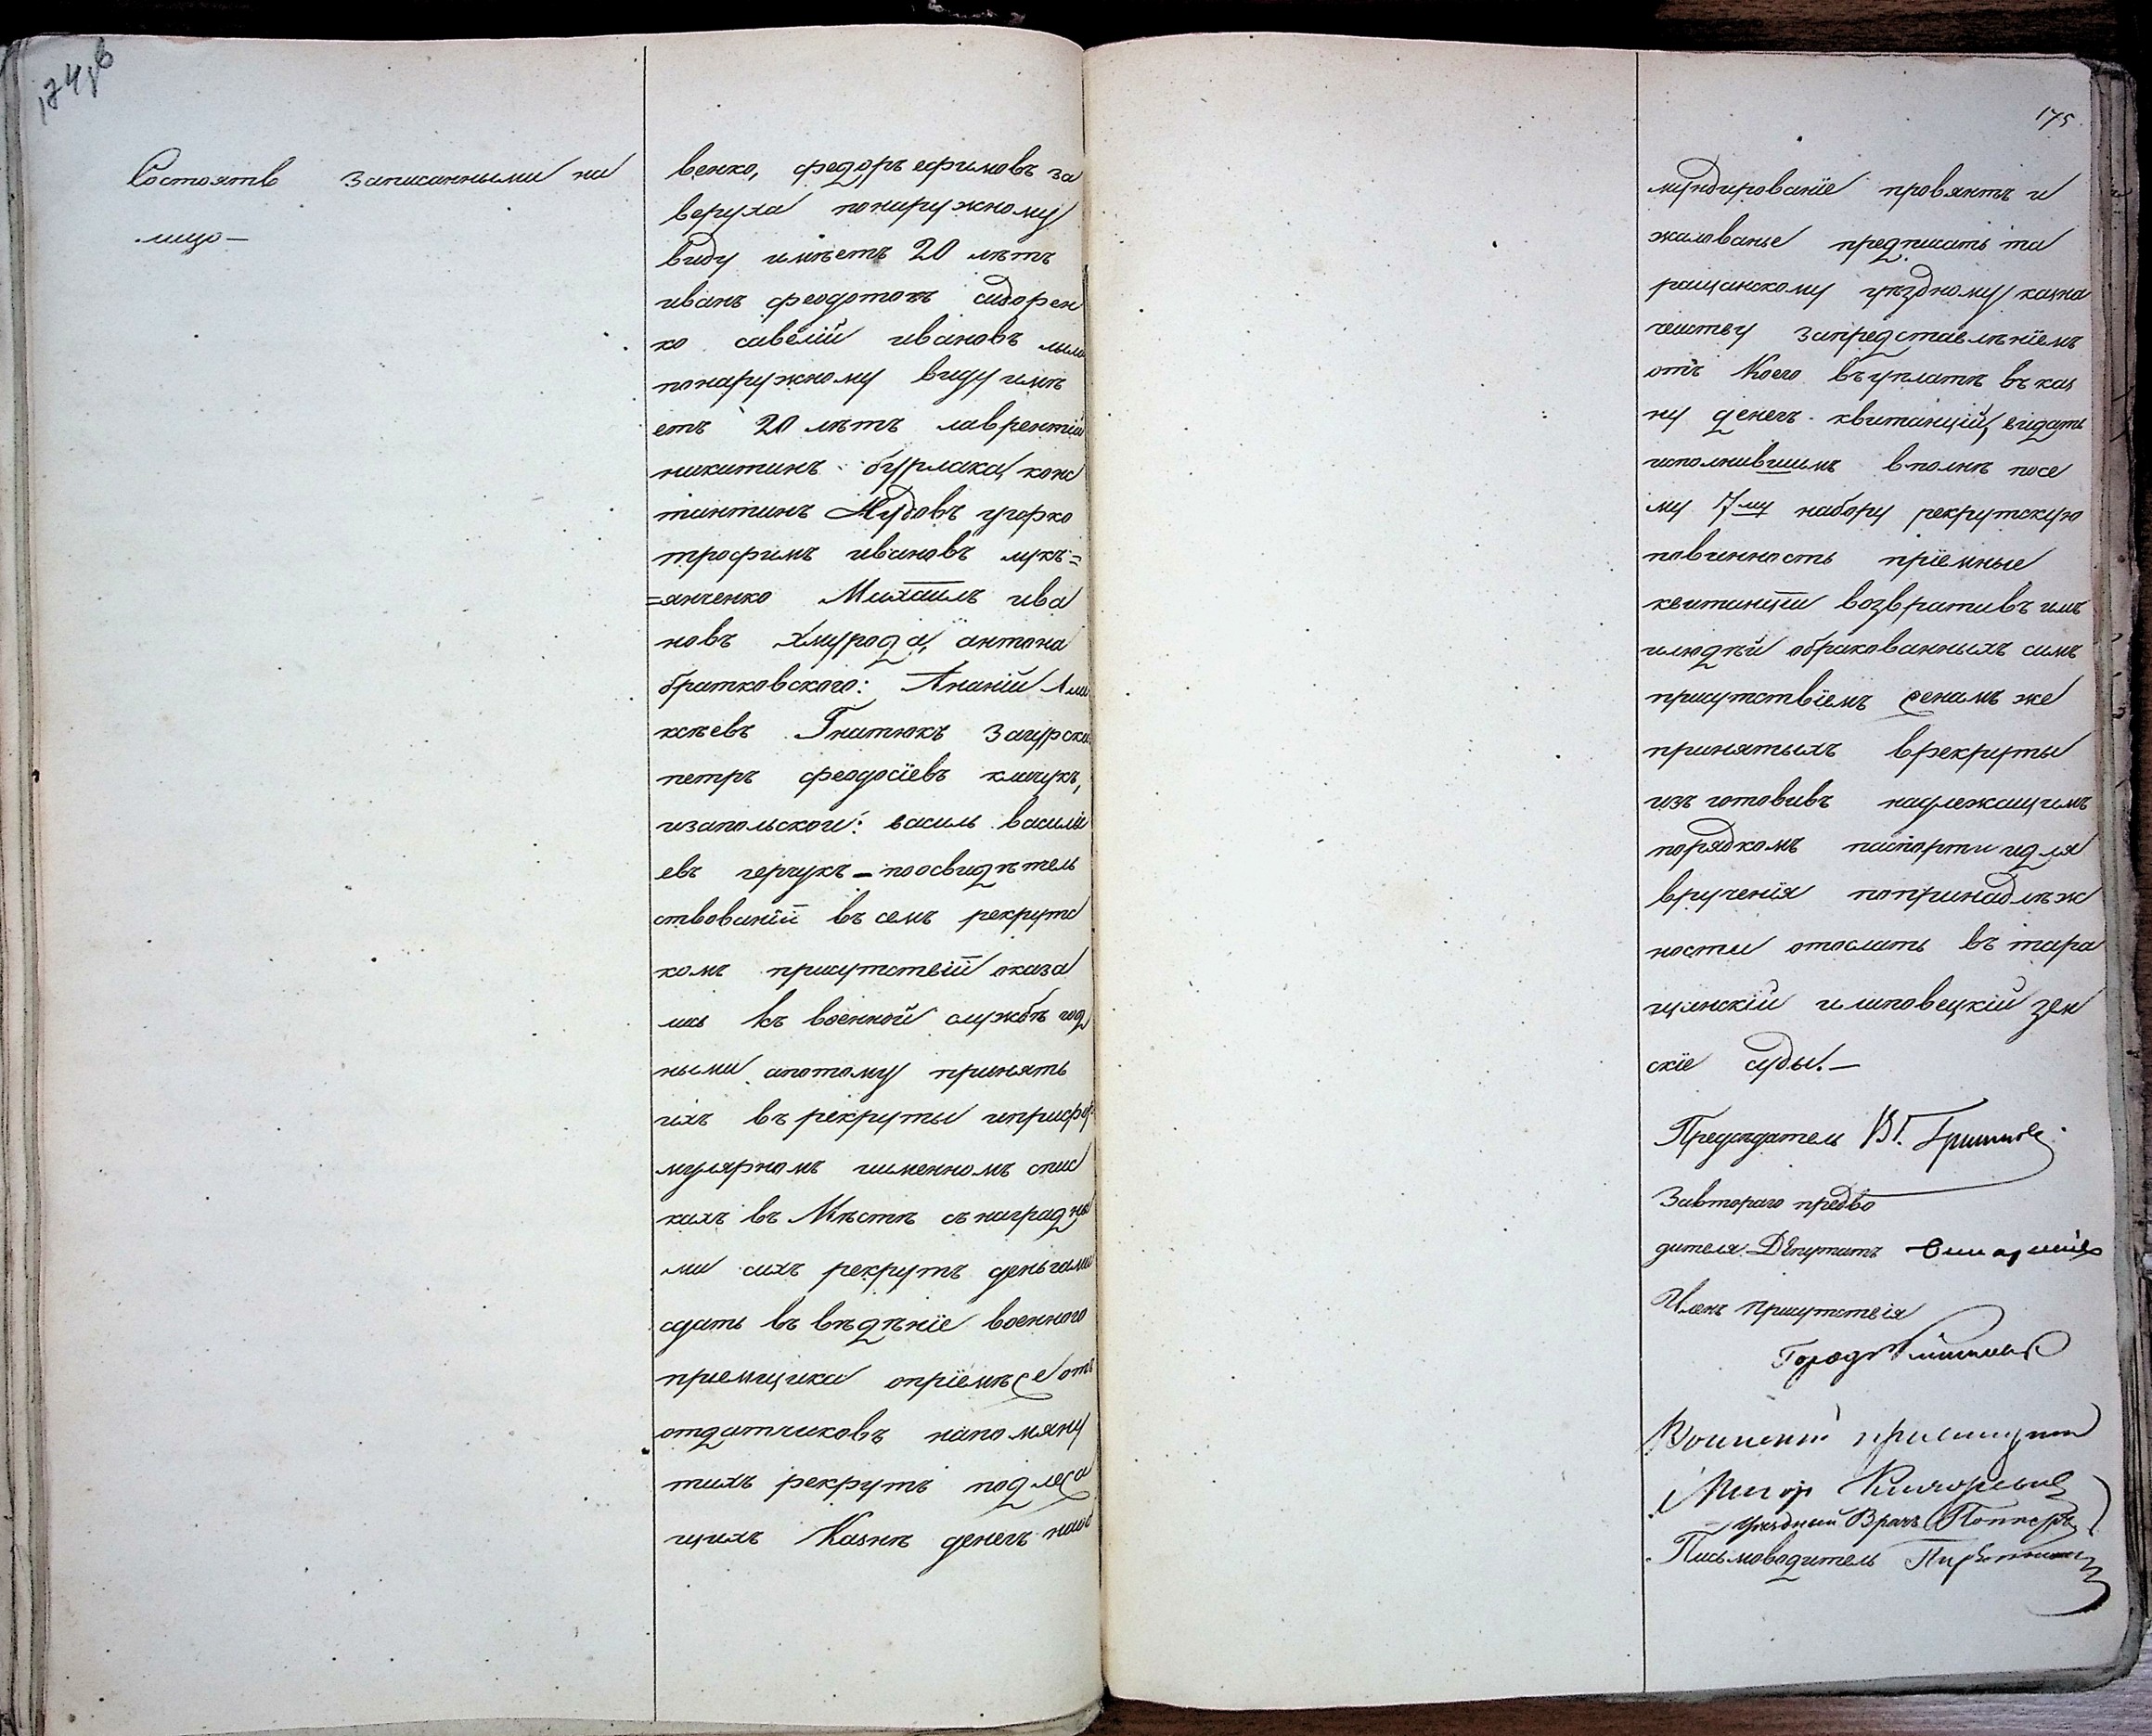 174об
Состоятъ записанными на
лицо —
венко, федоръ ефимовъ за
веруха понаружному
виду имѣетъ 20 лѣтъ
иванъ феодотовъ сидорен
ко савелій ивановъ
понаружному виду имѣ
етъ 20 лѣтъ лаврентій
никитинъ бурлака, конс
тантинъ угорко
трофимъ ивановъ лукъ=
=янченко Михаилъ ива
новъ хмурода, антона
братковского: Ананій Але
ксѣевъ Гнатюкъ
петръ феодосіевъ климукъ,
изапольской: василь василіе
евъ герчукъ – поосвидѣтель
ствованіи въ семъ рекрутс
комъ присутствіи оказа
лись къ военной службѣ год
ными апотому принять
ихъ въ рекруты иприфор
мулярномъ иименномъ спис
кахъ въ Мѣстѣ съ наградны
ми сихъ рекрутъ деньгами
сдать въ вѣдѣніе военного
приемщика оприемѣ же отъ
отдатчиковъ напомяну
тихъ рекрутъ подлежа
щихъ Казнѣ денегъ наоб
175
мундированіе провіянтъ и
жалованье предписать та
ращанскому уѣздному казна
чейству запредставленіемъ
отъ Коего въуплатѣ въ каз
ну денегъ квитанцій, видать
исполнившимъ вполнѣ посе
му 7му набору рекрутскую
повинность пріемные
квитанціи возвративъ имъ
илюдей обракованныхъ симъ
присутствіемъ женамъ же
принятыхъ врекруты
изъ готовивъ надлежащимъ
порядкомъ паспорти идля
врученія попринадлеж
ности отослать въ тара
щанскій илиповецкій зем
скіе суды. —
Предсѣдатель
Завтораго предво
дителя Депутатъ
Членъ присутствія
Город
Военный приемщикъ
Маіоръ
Уѣздный Врачъ
Письмоводитель